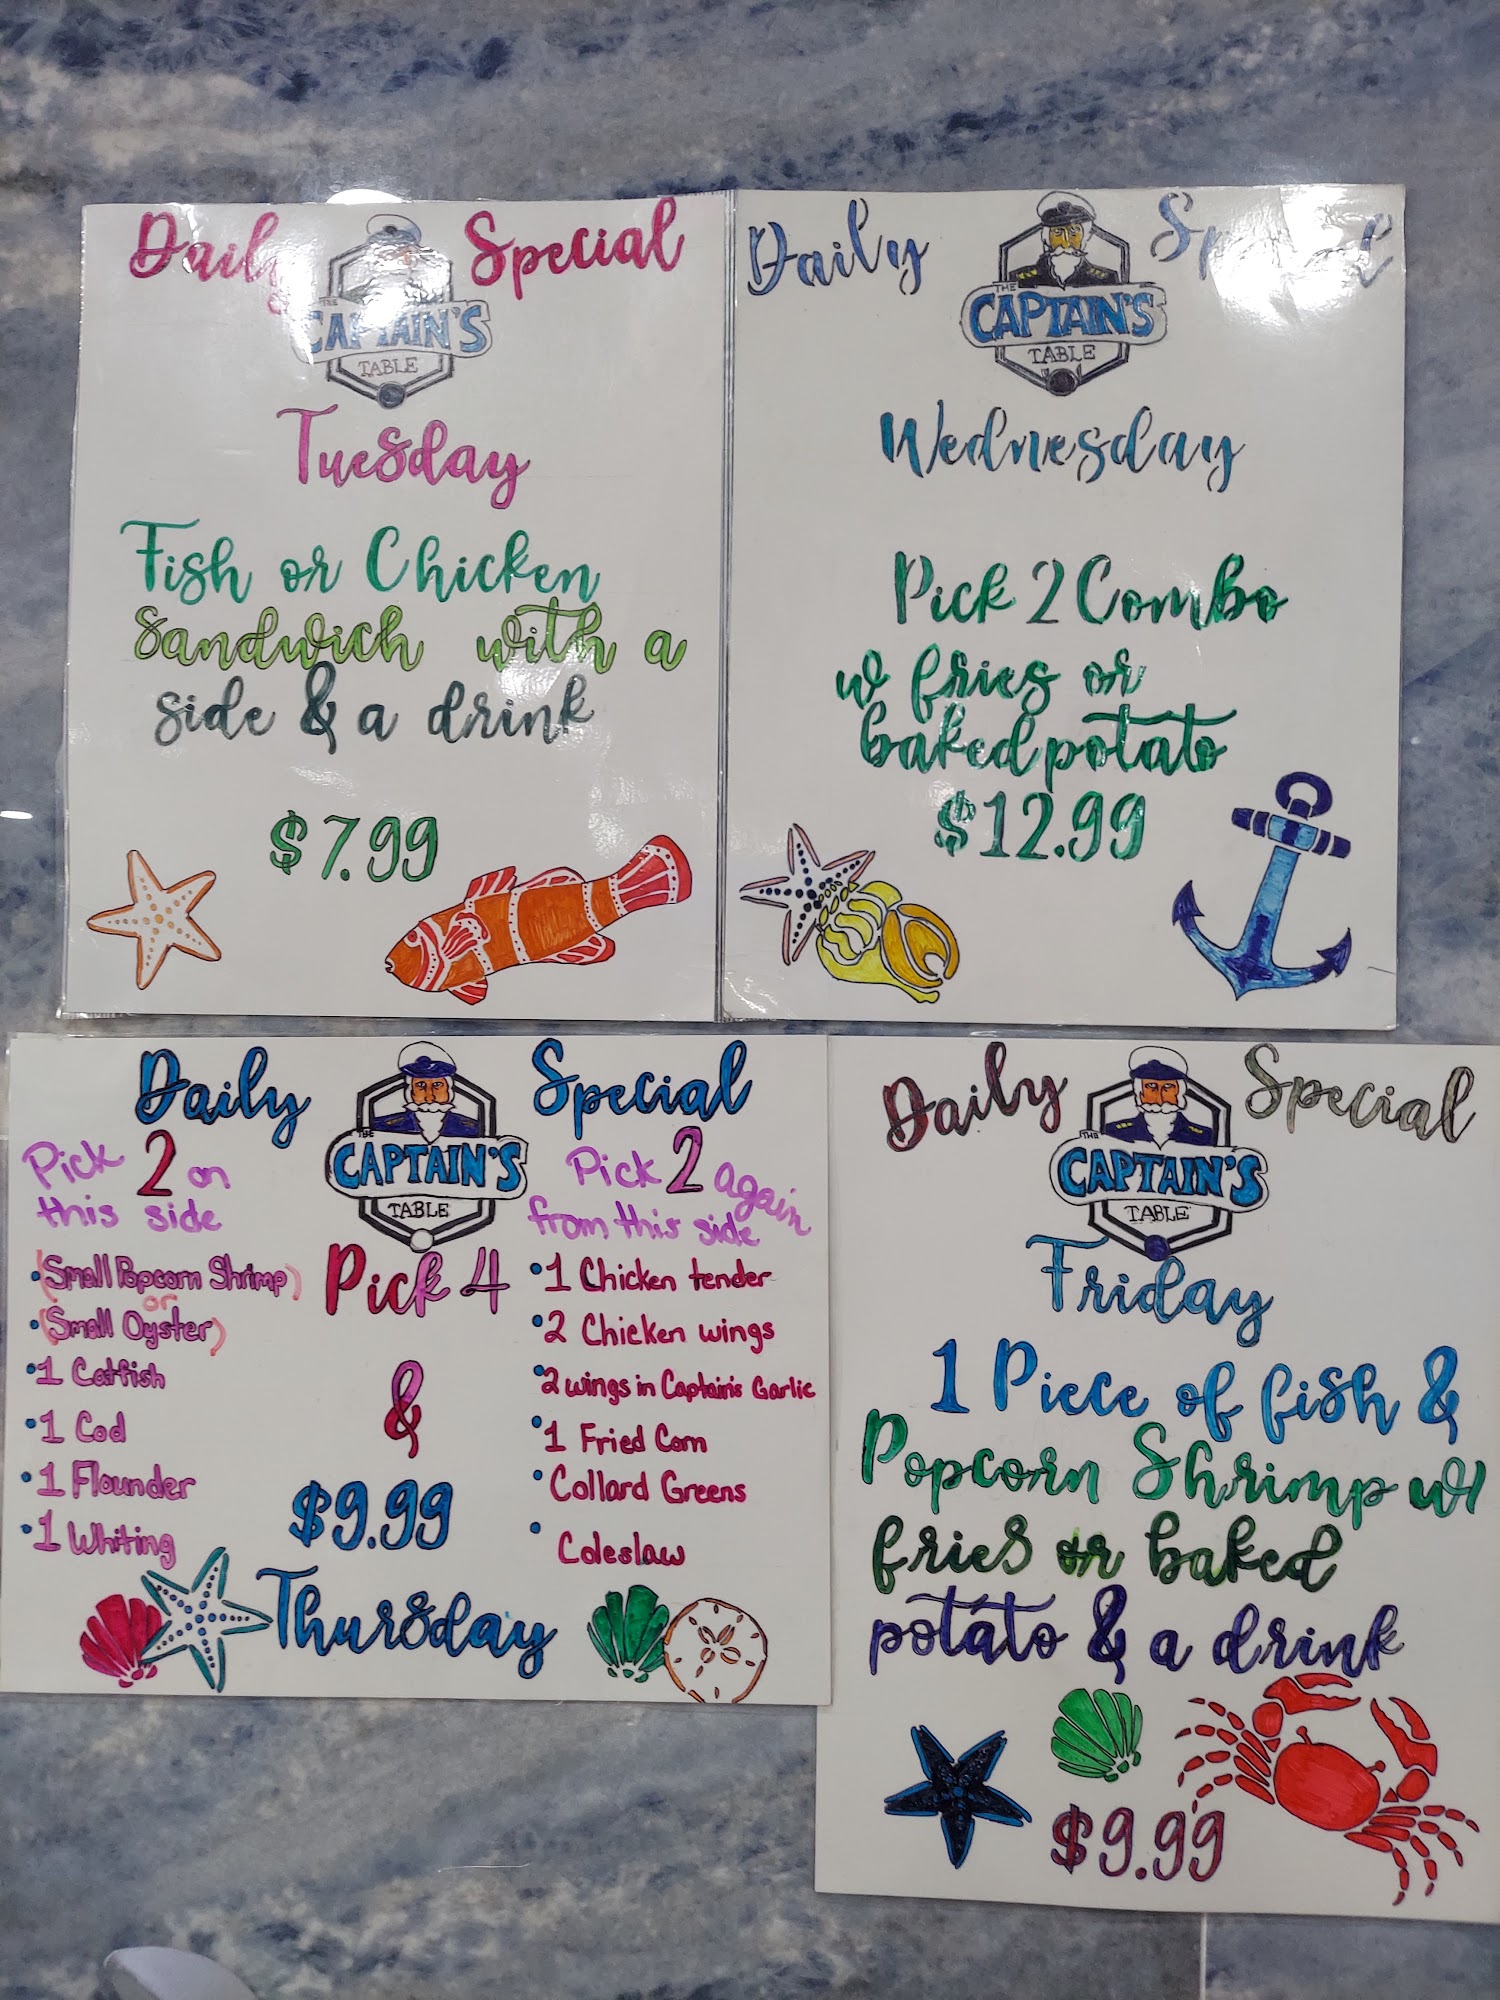 Daily Special
THE
CAPTAIN'S
TABLE
Tuesday
Fish or Chicken
Sandwich with a
side & a drink
$7.99
Daily Special
THE
CAPTAIN'S
TABLE
Wednesday
Pick 2 Combo
w fries or
baked potato
$12.99
Daily Special
THE
CAPTAIN'S
TABLE
Pick 2 on
this side
(Small Popcorn Shrimp)
or
(Small Oyster)
1 Catfish
1 Cod
1 Flounder
1 Whiting
Pick 4
&
$9.99
Thursday
Pick 2 again
from this side
1 Chicken tender
2 Chicken wings
2 wings in Captain's Garlic
1 Fried Corn
Collard Greens
Coleslaw
Daily Special
THE
CAPTAIN'S
TABLE
Friday
1 Piece of fish &
Popcorn Shrimp w/
fries or baked
potato & a drink
$9.99